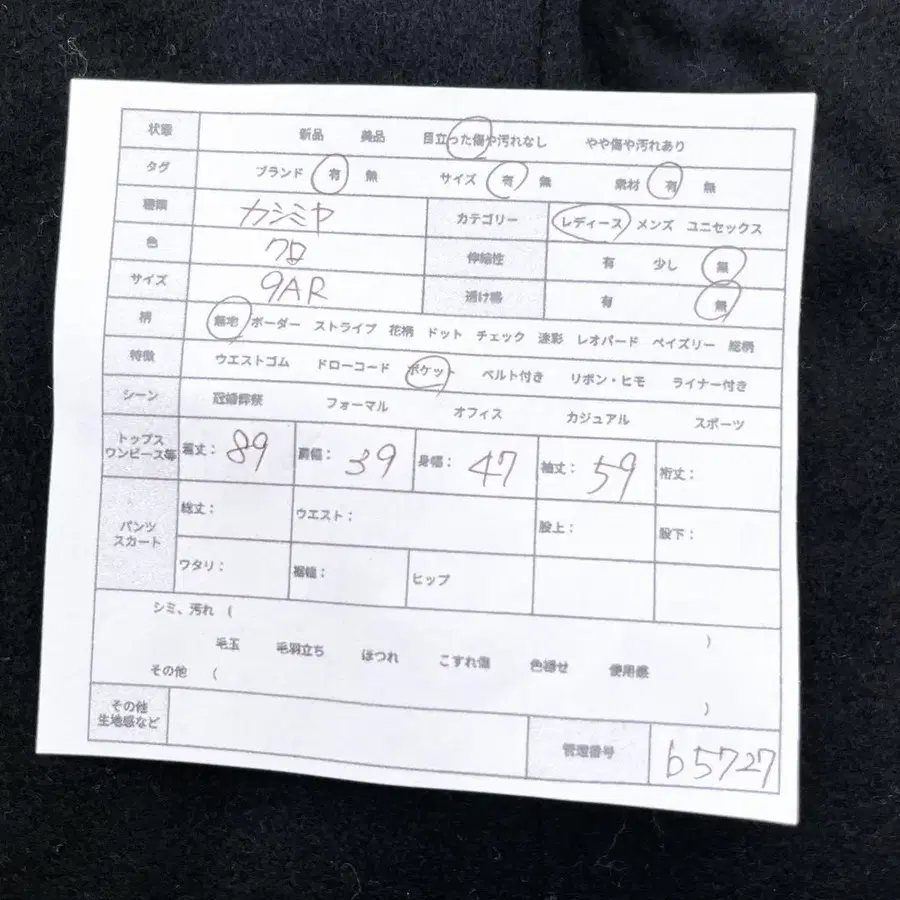 状態 新品 美品 目立った傷や汚れなし やや傷や汚れあり
タグ ブランド 有 無 サイズ 有 無 素材 有 無
種類 カシミヤ カテゴリー レディース メンズ ユニセックス
色 クロ 伸縮性 有 少し 無
サイズ 9AR 透け感 有 無
柄 無地 ボーダー ストライプ 花柄 ドット チェック 迷彩 レオパード ペイズリー 総柄
特徴 ウエストゴム ドローコード ポケット ベルト付き リボン・ヒモ ライナー付き
シーン 冠婚葬祭 フォーマル オフィス カジュアル スポーツ
トップス
ワンピース等 着丈： 89 肩幅： 39 身幅： 47 袖丈： 59 裄丈：
パンツ
スカート 総丈： ウエスト： 股上： 股下：
ワタリ： 裾幅： ヒップ
シミ、汚れ ( )
毛玉 毛羽立ち ほつれ こすれ傷 色褪せ 使用感
その他 ( )
その他
生地感など 管理番号 b5727